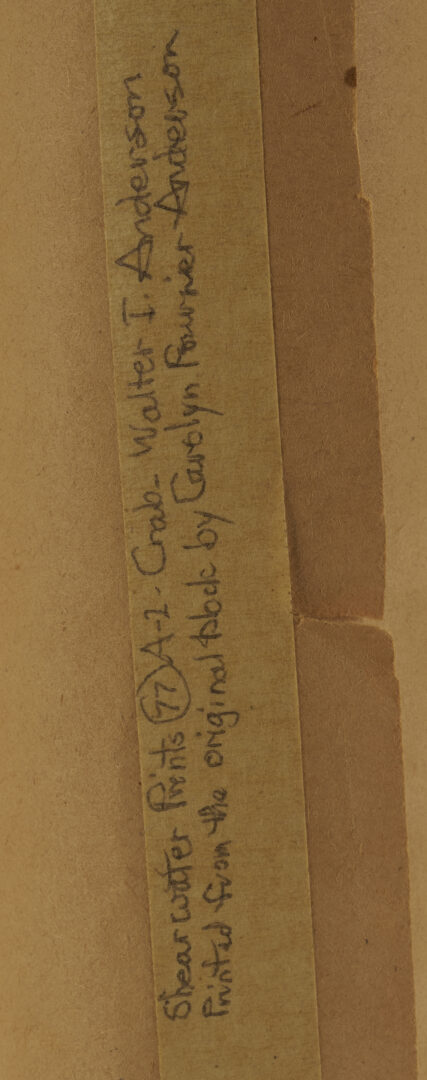 Shearwater Prints 57 A-2 - Crab - Walter I. Anderson
Printed from the original block by Carolyn Fournier Anderson